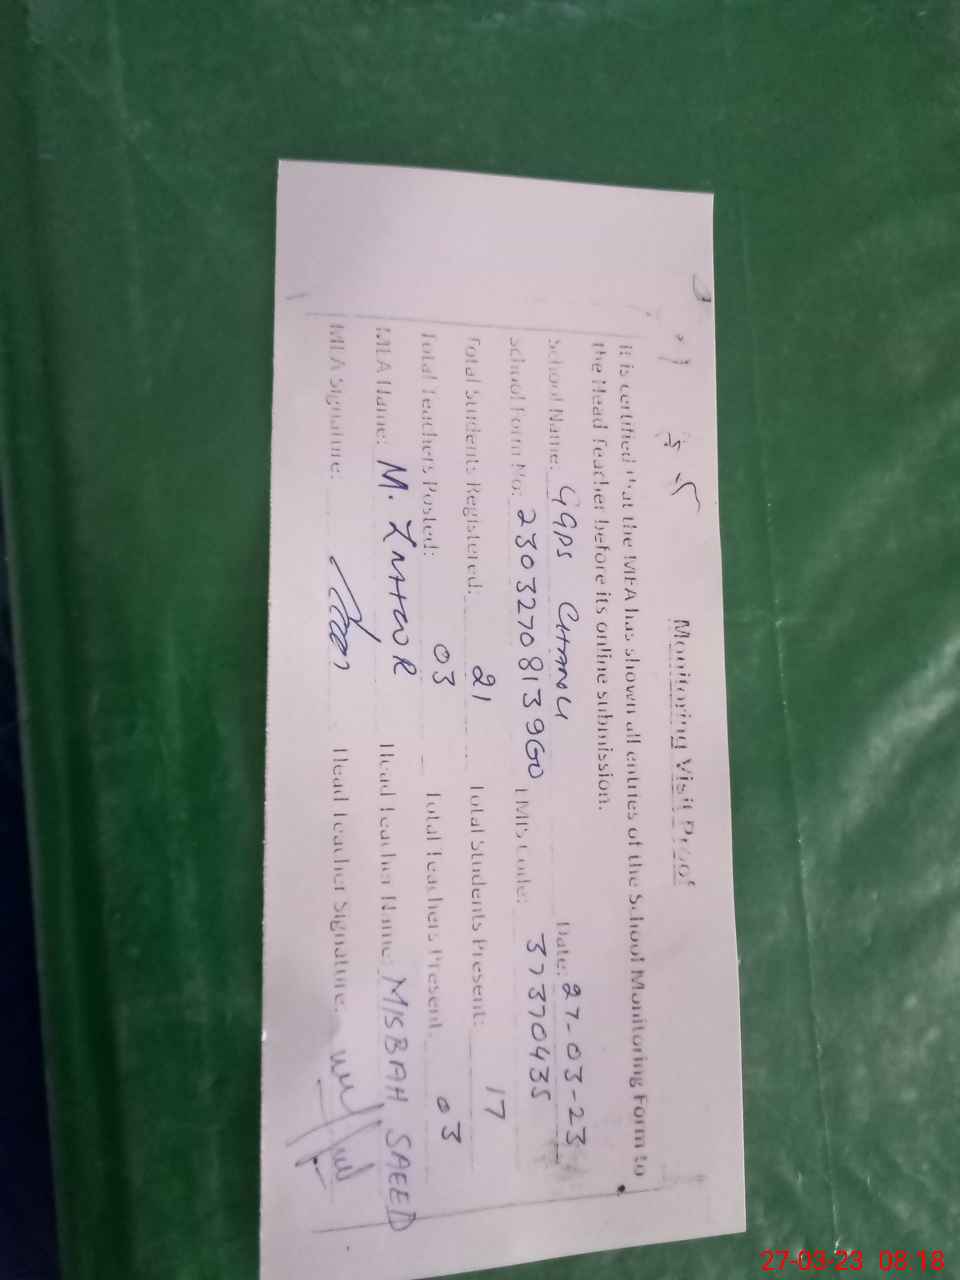 Monitoring Visit Proof
It is certified that the MEA has shown all entries of the School Monitoring Form to
the Head Teacher before its online submission.
School Name: GGPS Date: 27-03-23
School Form No: 23032708139GO EMIS Code: 37370435
Total Students Registered: 21 Total Students Present: 17
Total Teachers Posted: 03 Total Teachers Present: 03
MEA Name: M. Head Teacher Name: MISBAH SAEED
MEA Signature: Head Teacher Signature:
27-03-23 08:18